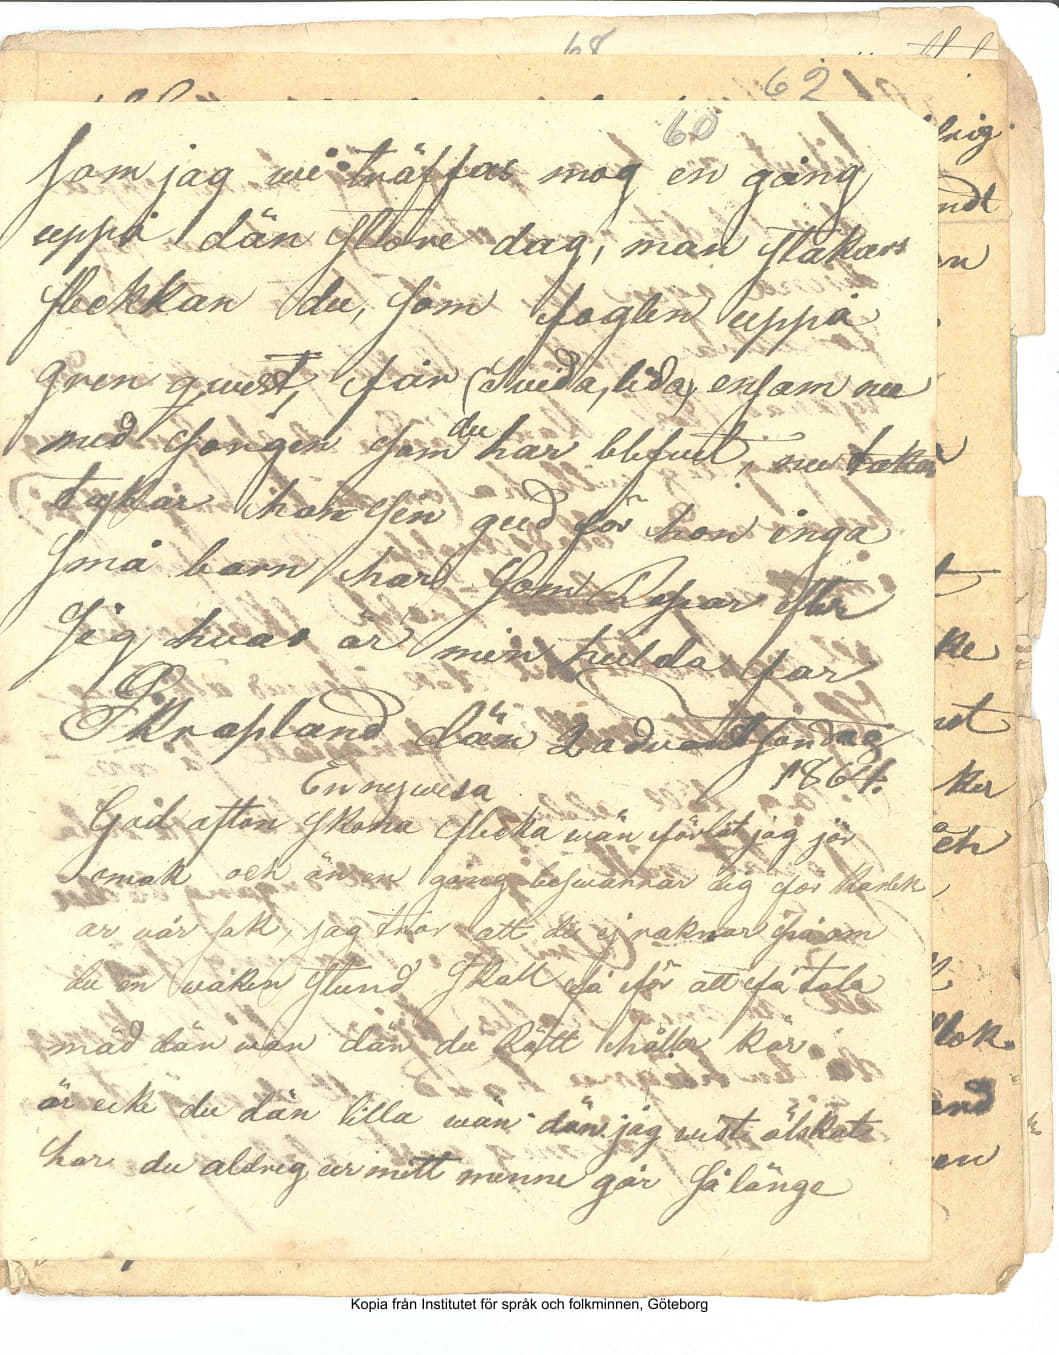 68
62
60
som jag wi träffas mog en gång
uppå dän store dag, man stakars
flekkan du, som foglen uppå
gren quest, får (Sveda, lida) ensam nu
med sorgen som du har blefvet, nu takar
takar hon sin gud för hon inga
små barn har som Ropar efter
sig hvar är min hulda far
Skrapland dän 2 advantsöndag
1864.
En ny wesa
God afton skona flicka wän förlåt jag jör
omak och än en gång beswännar dig för kärlek
är vår sak, jag tror att du ej räknar på om
du en waken stund skall få för att få tala
mäd dän wän dän du Rätt håller kär
är ecke du dän lilla wän dän jag wist älskat
har du aldrig ur mitt menne går så länge
Kopia från Institutet för språk och folkminnen, Göteborg